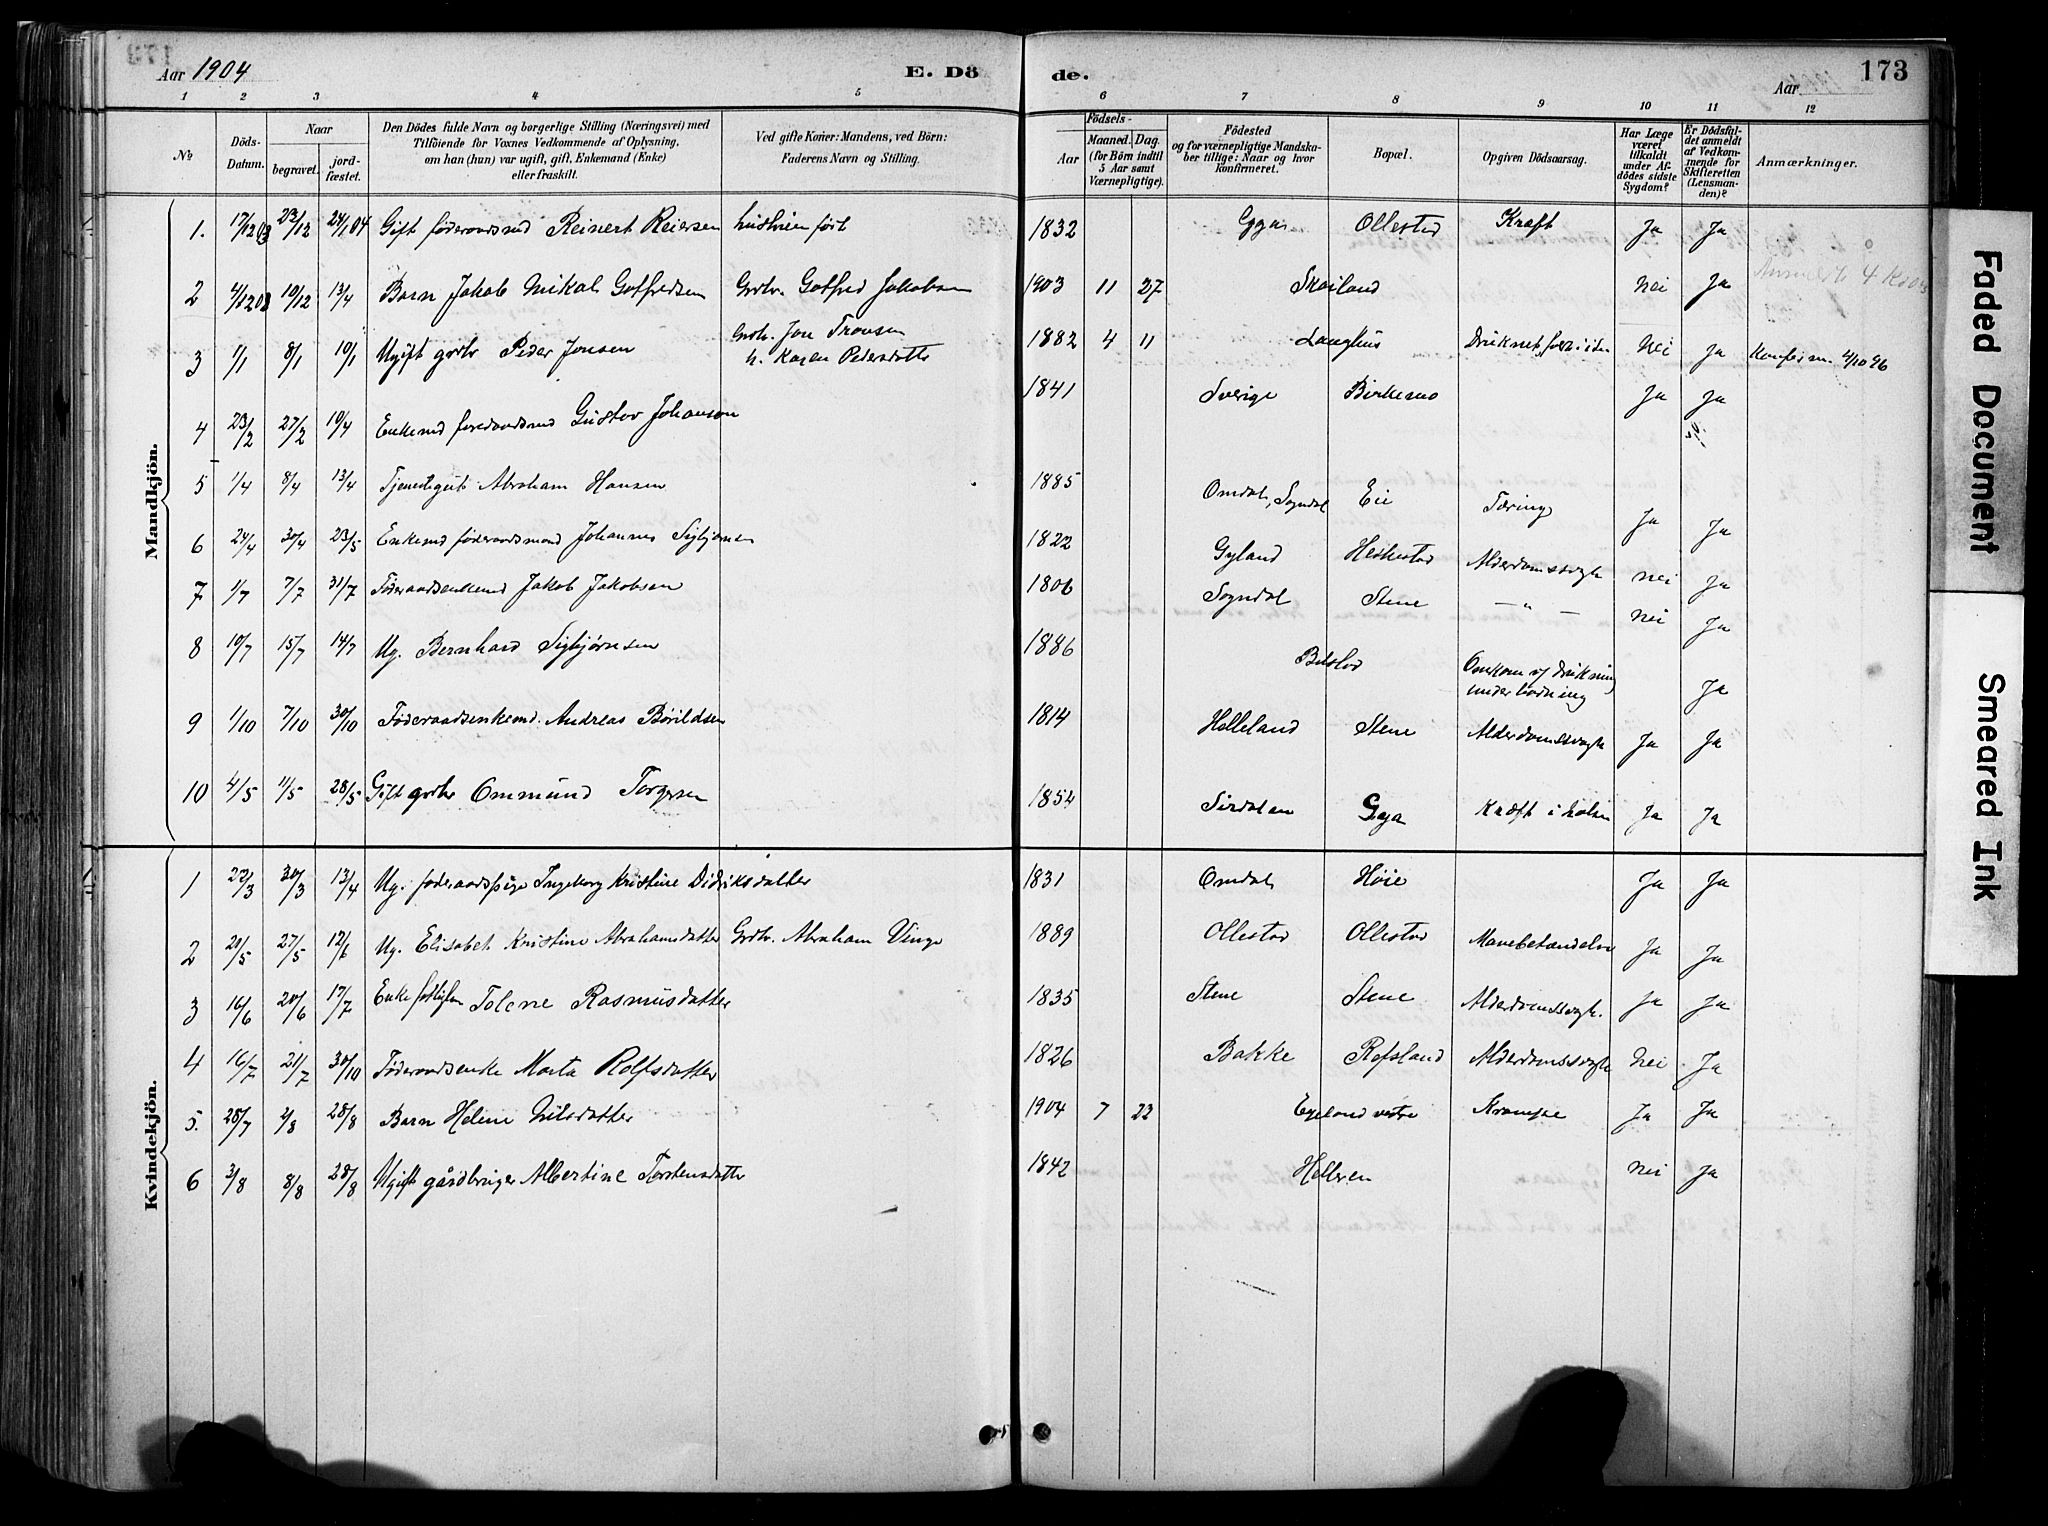 Aar 1904
E. Dö
de.
Aar
173
1 2 3 4 5 6 7 8 9 10 11 12
No
Döds-Datum.
Naar
begravet.
jord-fæstet.
Den Dödes fulde Navn og borgerlige Stilling (Næringsvei) med
Tilföiende for Voxnes Vedkommende af Oplysning,
om han (hun) var ugift, gift, Enkemand (Enke)
eller fraskilt.
Ved gifte Koner: Mandens, ved Börn:
Faderens Navn og Stilling.
Födsels-
Aar
Maaned. Dag.
(for Börn indtil
5 Aar samt
Værnepligtige).
Födested
og for værnepligtige Mandska-
ber tillige: Naar og hvor
konfirmeret.
Bopæl.
Opgiven Dödsaarsag.
Har Læge
været
tilkaldt
under Af-
dödes sidste
Sygdom?
Er Dödsfal-
det anmeldt
af Vedkom-
mende for
Skifteretten
(Lensman-
den)?
Anmærkninger.
Mandkjön.
1. 17/12 03 23/12 24/1 04 Gift föderaadsmd Reinert Reiersen 1832 Gya Ollestad Kræft Ja Ja
2 4/12 03 10/12 13/4 Barn Jakob Mikal Gotfredsen Grdbr. Gotfred Jakobsen 1903 11 27 Skailand Nei Ja
3 1/1 8/1 10/1 Ugift grdbr Peder Jonsen Grdb. Jon Tronsen
h. Karen Pedersdatte 1882 4 11 Langhus Druknet, for i isen Nei Ja Konfirm. 4/10 96
4 23/2 27/2 10/4 Enkemd foredraadsmd Gustav Johanson 1841 Sverige Birkemo Ja Ja
5 1/4 8/4 13/4 Tjenestgut Abraham Hansen 1885 Omdal, Sogndal Eie Tæring Ja Ja
6 24/4 30/4 23/5 Enkemd föderaadsmand Johannes Sigbjørnsen 1822 Gyland Heskestad Alderdomssvagh nei Ja
7 1/7 7/7 31/7 Föderaadsenkemd Jakob Jakobsen 1806 Sogndal Stene — " — nei Ja
8 10/7 15/7 14/7 Ug. Bernhard Sigbjørnsen 1886 Bilstad Omkom v/ drukning
under badning Ja
9 1/10 7/10 30/10 Föderaadsenkemd. Andreas Börildsen 1814 Helleland Stene Alderdomssvagh Ja Ja
10 4/5 11/5 28/5 Gift grdbr Ommund Torgersen 1854 Sirdalen Gya Kræft i halsen Ja Ja
Kvindekjön.
1 22/3 30/3 13/4 Ug. föderaadspige Ingeborg Kristine Didriksdatter 1831 Omdal Höie Ja Ja
2 20/5 27/5 12/6 Ug. Elisabet Kristine Abrahamsdatter Grdbr. Abraham Vinge 1889 Ollestad Ollestad Mavebetændelse Ja Ja
3 16/6 20/6 17/7 Enke fattiglem Tolene Rasmusdatter 1835 Stene Stene Alderdomssvagh. Ja Ja
4 16/7 21/7 30/10 Föderaadsenke Marta Rolfsdatter 1826 Bakke Refsland Alderdomssvagh Nei Ja
5. 28/7 2/8 28/8 Barn Helene Nilsdatter 1904 7 22 Egeland vestre Krampe Ja Ja
6 3/8 8/8 28/8 Ugift gårdbruger Albertine Torstensdatte 1842 Helleren Nei Ja
Faded Document
Smeared Ink